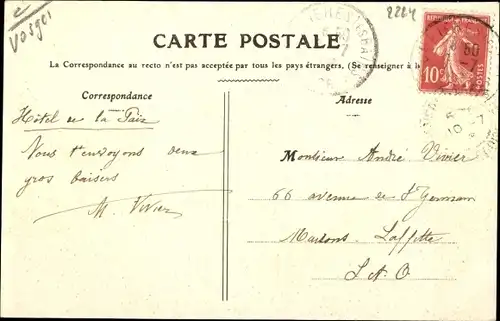 e
Vosges
2224
CARTE POSTALE
La Correspondance au recto n'est pas acceptée par tous les pays étrangers. (Se renseigner à
Correspondance
Adresse
REPUBLIQUE FRANÇAISE
10c
POSTES
Hôtel de la Paix
Nous t'envoyons deux
gros baisers
M. Vivier
Monsieur André Vivier
66 avenue de St Germain
Maisons-Laffitte
S. & O